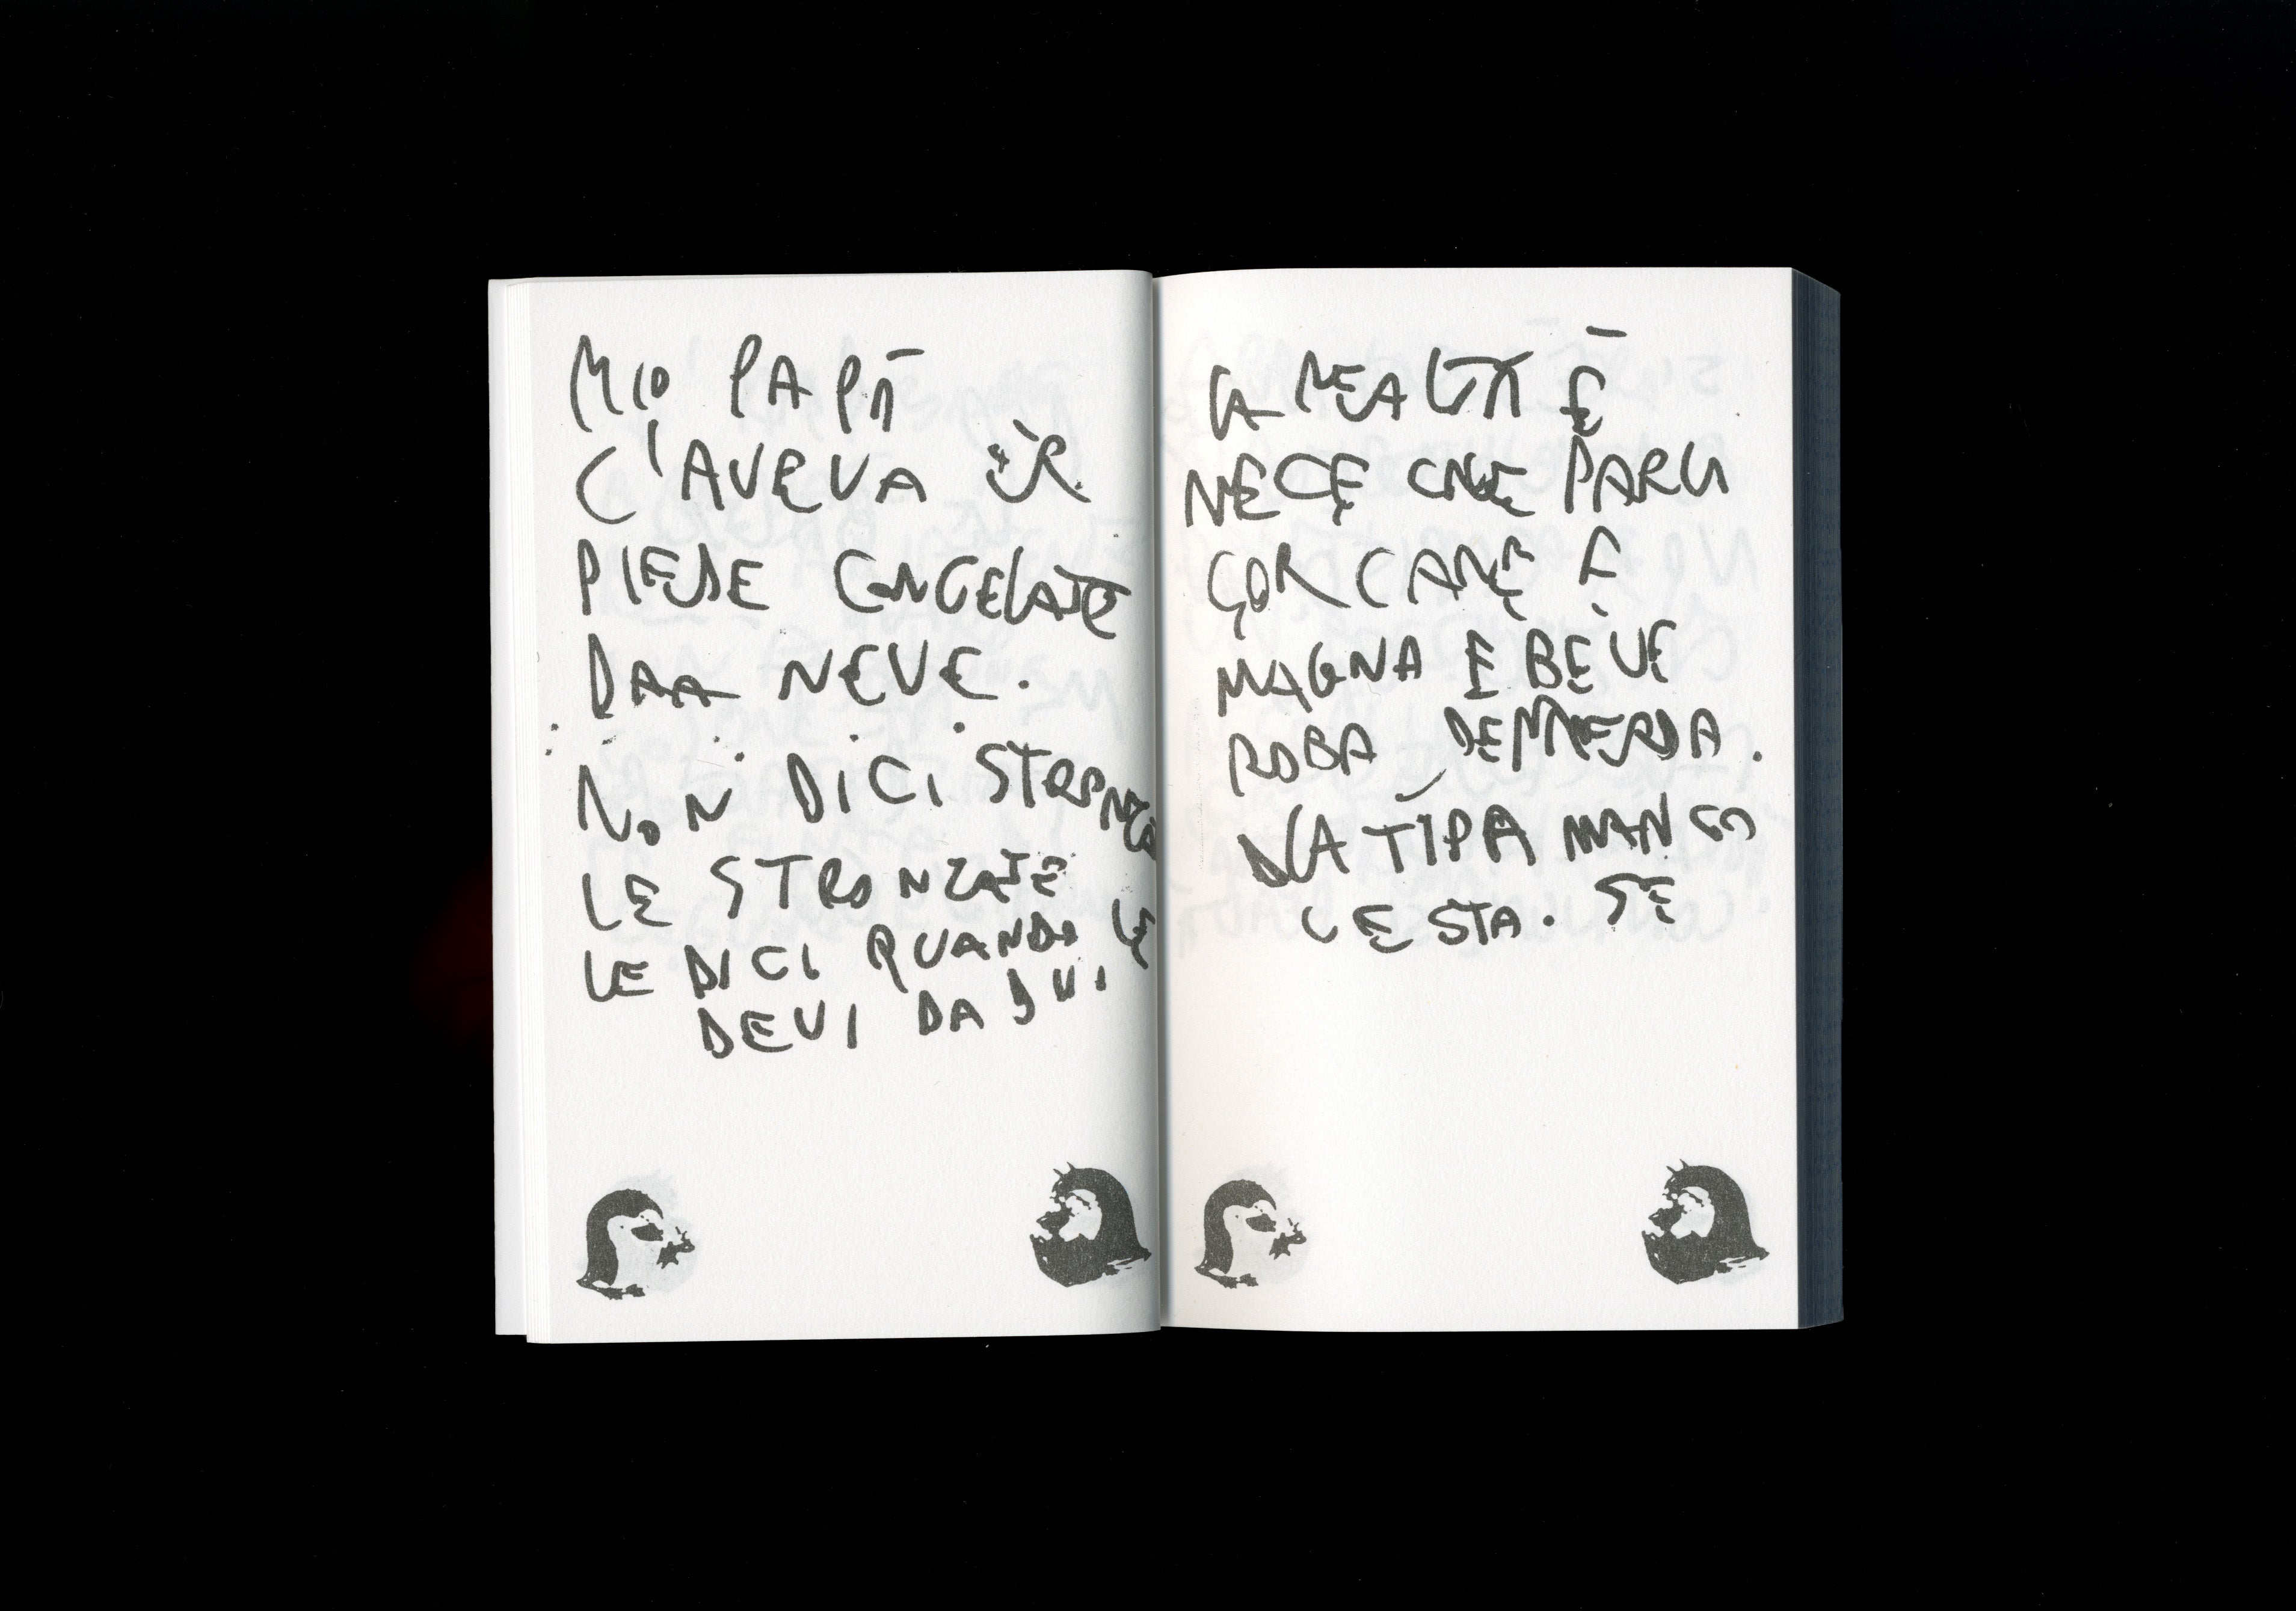 MIO PAPÀ
C'AVEVA ER
PIEDE CONGELATE
DAA NEVE.
NON DICI STRONZA
LE STRONZATE
LE DICI QUANDO LE
DEVI DA DUI
LA REALTÀ È
NECE CHE PARLI
COR CANE E
MAGNA E BEVE
ROBA DEMMERDA.
TIPA MANCO
CE STA. SE